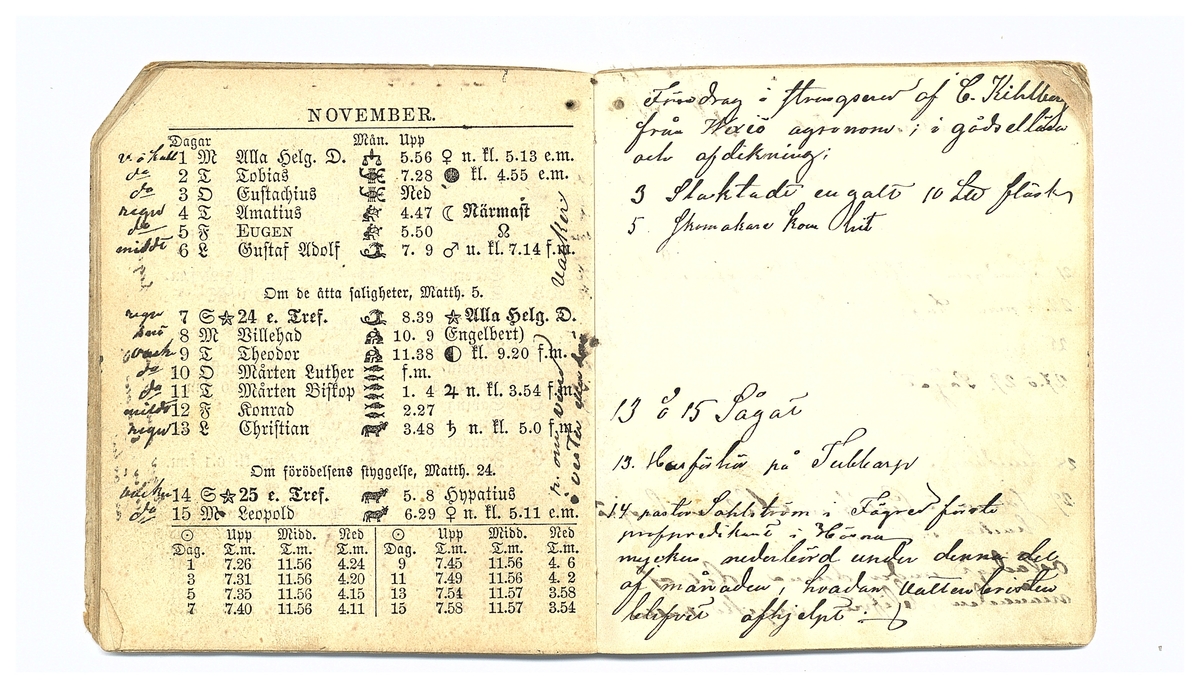 NOVEMBER.
Dagar Mån. Upp
1 M Alla Helg. D. 5.56 ♀ n. kl. 5.13 e.m.
do 2 T Tobias 7.28 kl. 4.55 e.m.
do 3 O Eustachius Ned
regn 4 T Amatius 4.47 ☾ Närmast
do 5 F EUGEN 5.50 ☊
mildt 6 L Gustaf Adolf 7. 9 ♂ u. kl. 7.14 f.m.
Om de åtta saligheter, Matth. 5.
regn 7 S ☆ 24 e. Tref. 8.39 ☆ Alla Helg. D.
snö 8 M Villehad 10. 9 Engelbert)
vack 9 T Theodor 11.38 kl. 9.20 f.m.
do 10 O Mårten Luther f.m.
do 11 T Mårten Biskop 1. 4 ♃ n. kl. 3.54 f.m.
mildt 12 F Konrad 2.27
regn 13 L Christian 3.48 ♄ n. kl. 5.0 f.m.
Om förödelsens styggelse, Matth. 24.
vacker 14 S ☆ 25 e. Tref. 5. 8 Hypatius
do 15 M Leopold 6.29 ♀ n. kl. 5.11 e.m.
☉ Upp Midd. Ned ☉ Upp Midd. Ned
Dag. T.m. T.m. T.m. Dag. T.m. T.m. T.m.
1 7.26 11.56 4.24 9 7.45 11.56 4. 6
3 7.31 11.56 4.20 11 7.49 11.56 4. 2
5 7.35 11.56 4.15 13 7.54 11.57 3.58
7 7.40 11.56 4.11 15 7.58 11.57 3.54
vacker
Föredrag i af C. Kihlberg
från Wexiö agronom; i gödsellära
och afdikning;
3 Slaktade en galt 10 fläsk
5 Skomakare kom hit
13 o 15 Sågat
13. Husförhör på Tubbarp
14 pastor Dahlström i Fägred förste
profpredikant i
mycken nederbörd under denna del
af månaden, hvadan vattenbristen
blifvit afhjelpt